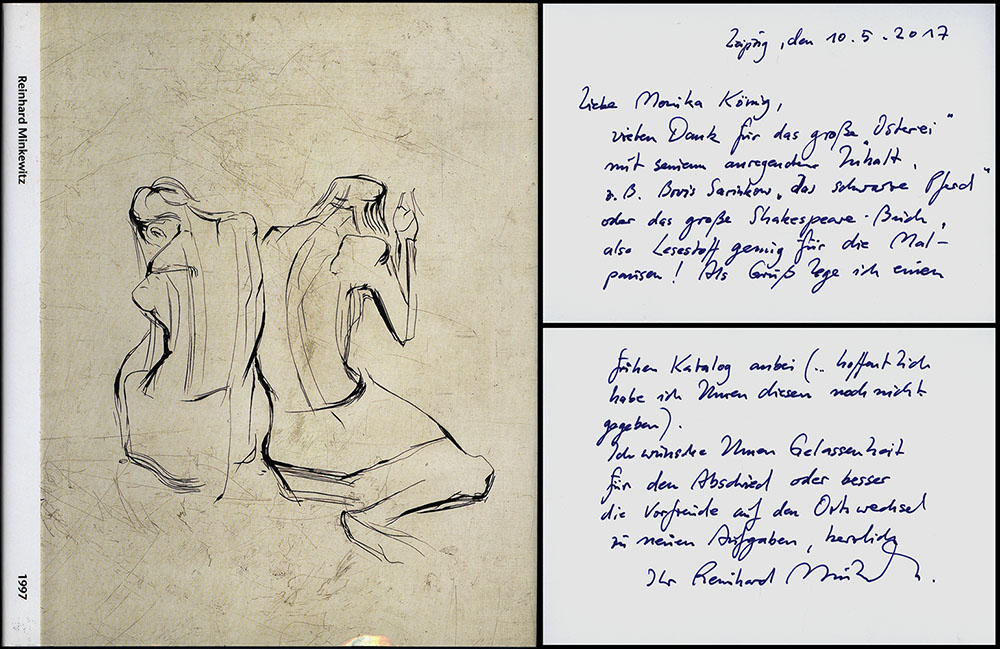 Reinhard Minkewitz
1997
Leipzig, den 10.5.2017
Liebe Monika König,
vielen Dank für das große „Osterei"
mit seinem anregenden Inhalt,
z.B. Boris Sawinkow „das schwarze Pferd"
oder das große Shakespeare-Buch,
also Lesestoff genug für die Mal-
pausen! Als Gruß lege ich einen
frühen Katalog anbei (.. hoffentlich
habe ich Ihnen diesen noch nicht
gegeben).
Ich wünsche Ihnen Gelassenheit
für den Abschied oder besser
die Vorfreude auf den Ortswechsel
zu neuen Aufgaben, herzlich
Ihr Reinhard Minkewitz.